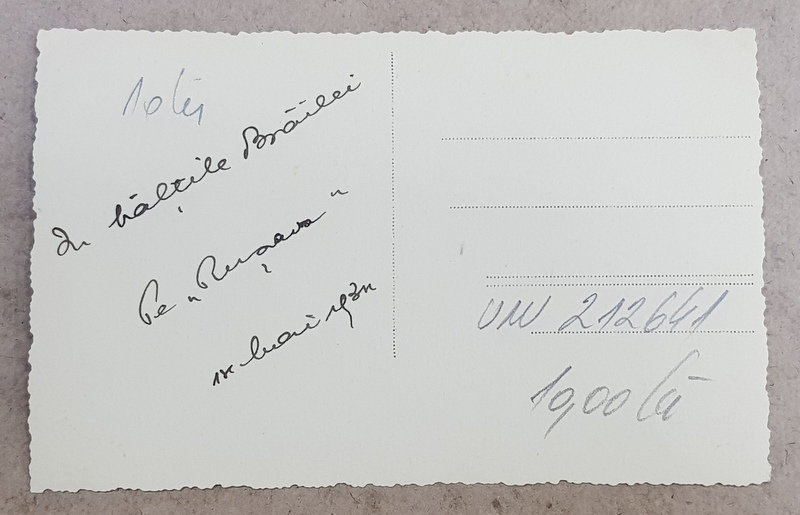 10 lei
In bălțile Brăilei
Pe „Rușava"
Mai 193
UNV 212641
10,00 lei